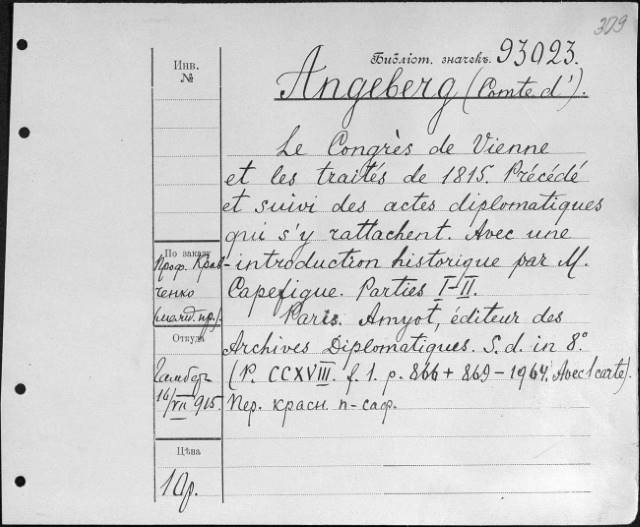 329
Инв.
№
Библіот. значекъ. 93023.
Angeberg (Comte d').
Le Congrès de Vienne
et les traités de 1815. Précédé
et suivi des actes diplomatiques
qui s'y rattachent. Avec une
introduction historique par M.
Capefigue. Parties I-II.
Paris. Amyot, éditeur des
Archives Diplomatiques. S. d. in 8°
(P. CCXVIII. f. 1. p. 866 + 869-1964. Avec 1 carte).
Пер. красн. п-саф.
По заказу
Проф. Крав-
ченко
Откуда
16/VII 915.
Цѣна
10р.